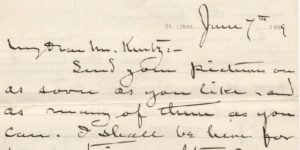 St. Louis, June 7th 1889
My Dear Mr. Kurtz:-
Send your pictures on
as soon as you like, and
as many of them as you
can. I shall be here for